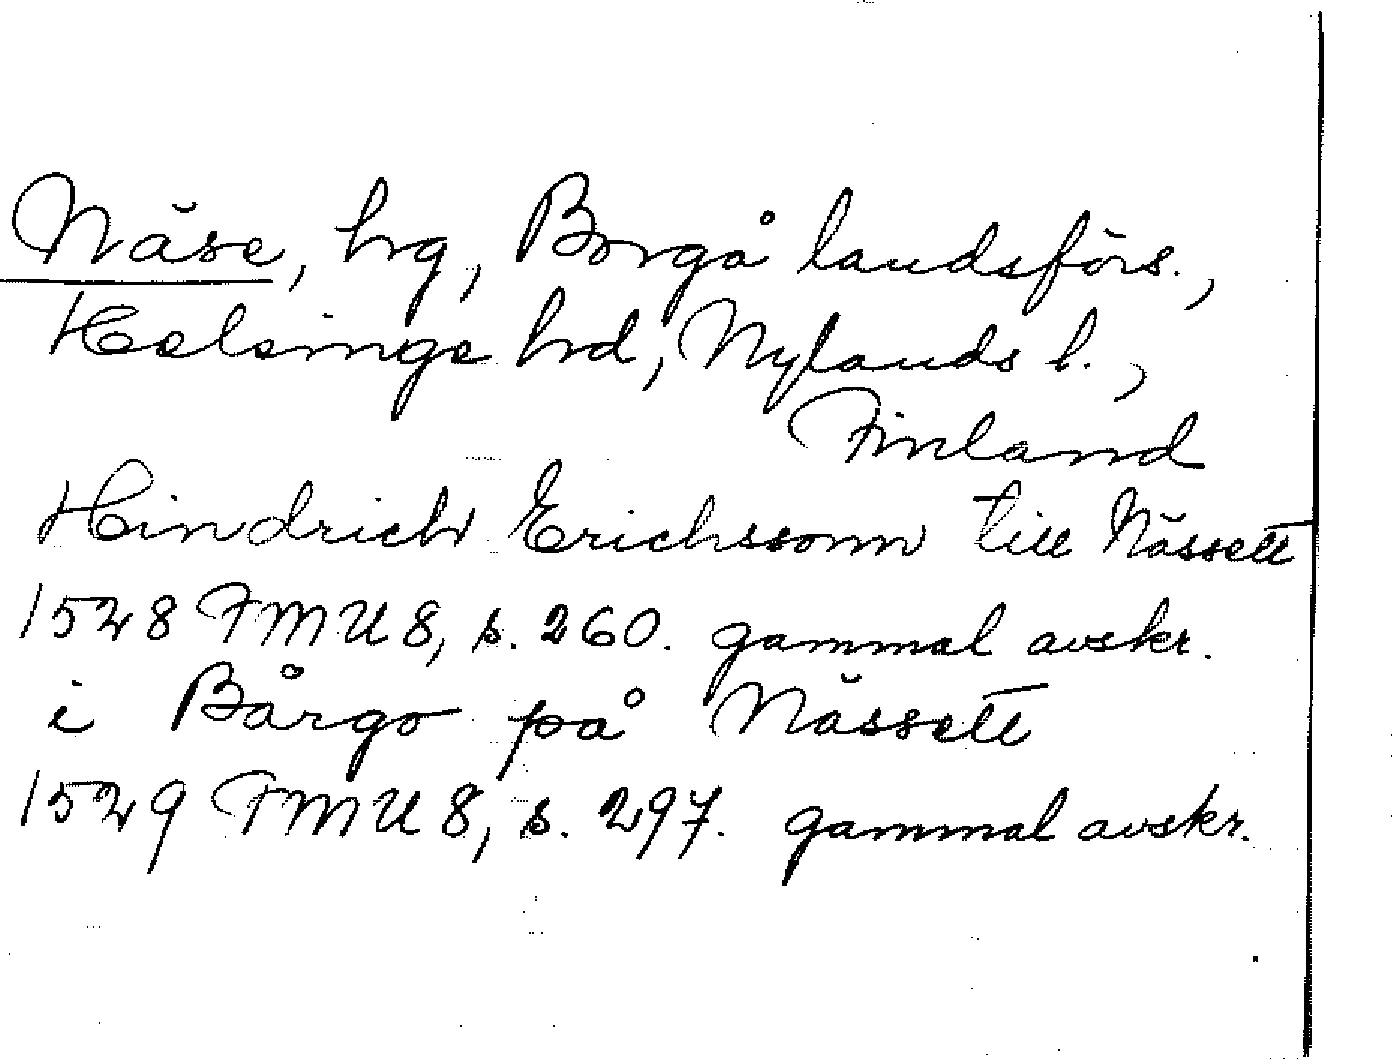 Näse, hrg, Borgå landsförs.,
Helsinge hrd, Nylands l.,
Finland
Hindrich Erichssonn till Nässett
1528 FMU 8, s. 260. gammal avskr.
i Bårgo på Nässett
1529 FMU 8, s. 297. gammal avskr.